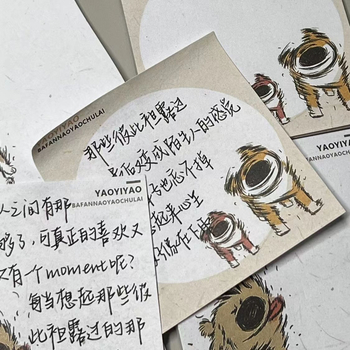 YAOYIYAO
BAFANNAOYAOCHULAI
那些彼此袒露过
最后又变成陌生人的感觉
也忘不掉
起来心里
YAOYIYAO
BAFANNAOYAOCHULAI
人之间有那
够了,可真正的喜欢又
又有一个moment呢?
每当想起那些彼
此袒露过的那